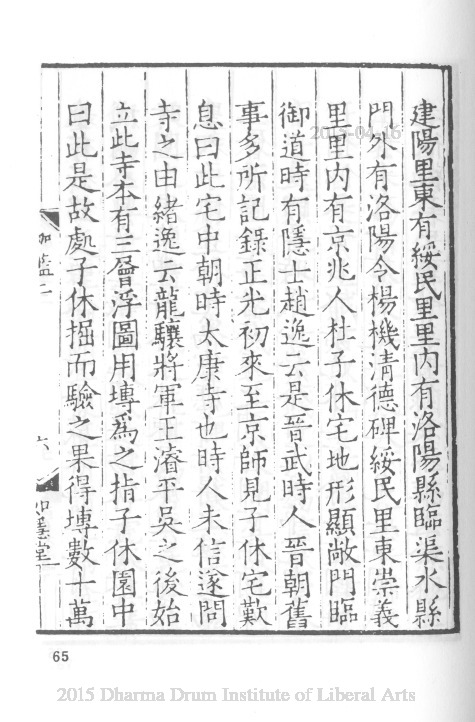 建陽里東有綏民里里内有洛陽縣臨渠水縣
門外有洛陽令楊機清德碑綏民里東崇義
里里内有京兆人杜子休宅地形顯敞門臨
御道時有隱士趙逸云是晉武時人晉朝舊
事多所記錄正光初來至京師見子休宅歎
息曰此宅中朝時太康寺也時人未信遂問
寺之由緒逸云龍驤將軍王濬平吳之後始
立此寺本有三層浮圖用塼爲之指子休園中
曰此是故處子休掘而驗之果得塼數十萬
六
如隱堂
65
2015-04-16
2015 Dharma Drum Institute of Liberal Arts